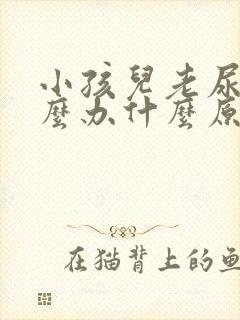 小孩兒老尿
麼办什麼原
在猫背上的鱼